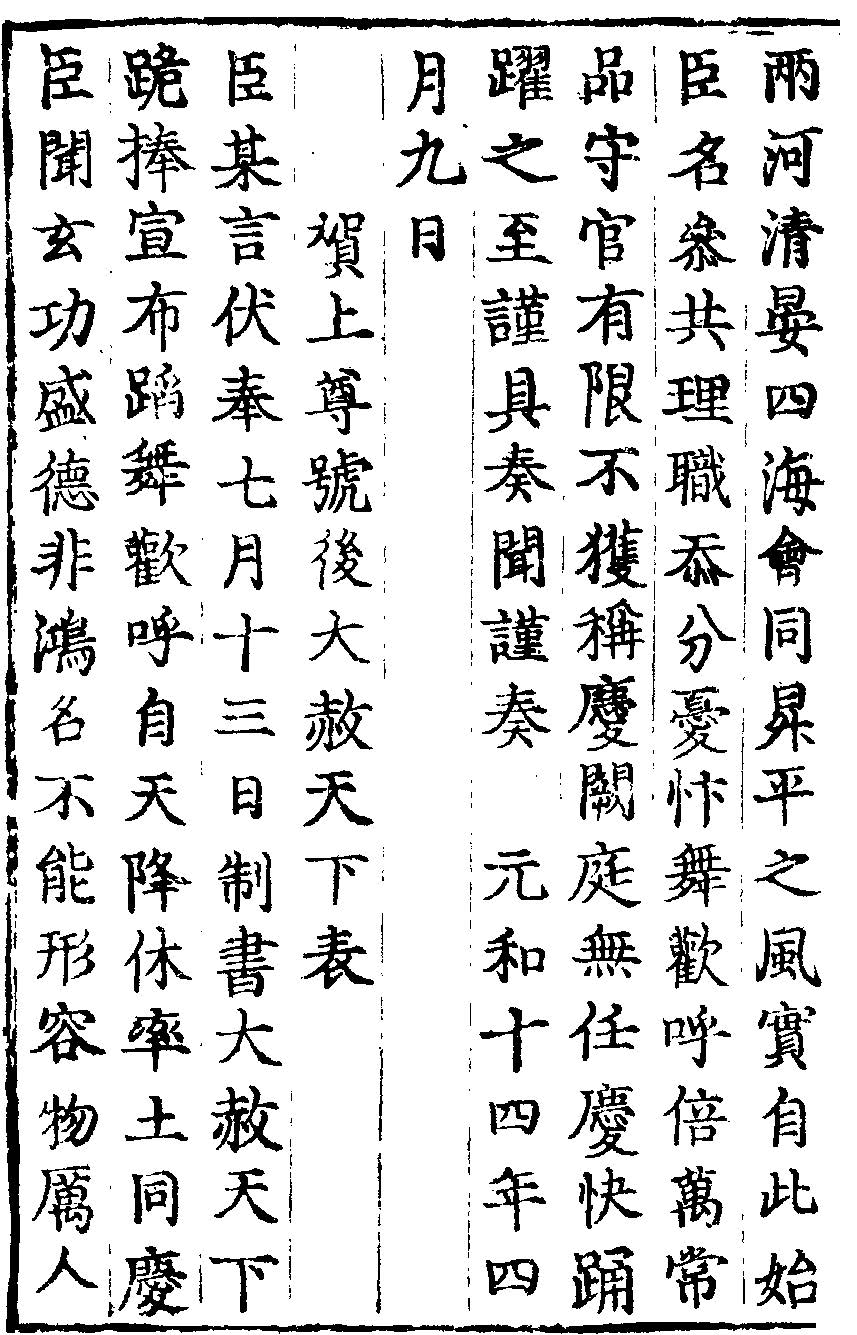 兩河清晏四海會同昇平之風實自此始
臣名叅共理職忝分憂忭舞歡呼倍萬常
品守官有限不獲稱慶闕庭無任慶快踊
躍之至謹具奏聞謹奏　元和十四年四
月九日
賀上尊號後大赦天下表
臣某言伏奉七月十三日制書大赦天下
跪捧宣布蹈舞歡呼自天降休率土同慶
臣聞玄功盛德非鴻名不能形容物厲人